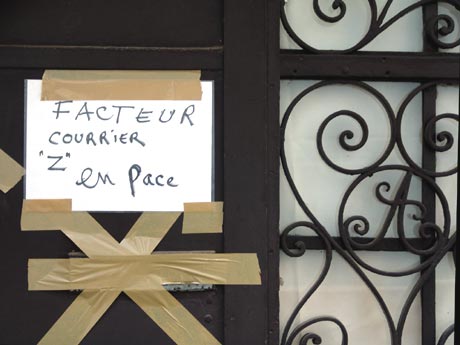 FACTEUR
COURRIER
"Z" en pace